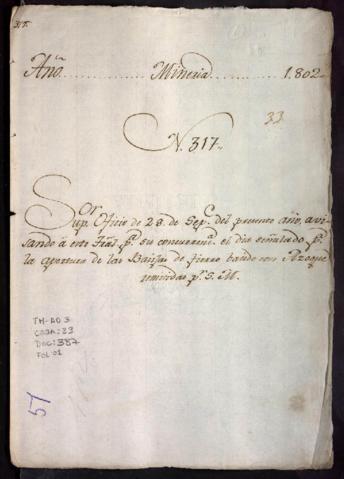 317.
Año. Mineria. 1.802.
33
N. 317.
Sor
Sup. Oficio de 28. de Sepe. del presente año, avi-
sando á este Tral. pa. su concurrena. el dia señalado pa.
la apertura de las Baijas de fierro bando con Azogue
remitidas pr. S. M.
TM-AO 3
CAJA: 23
DOC: 387
FOL: 01
57